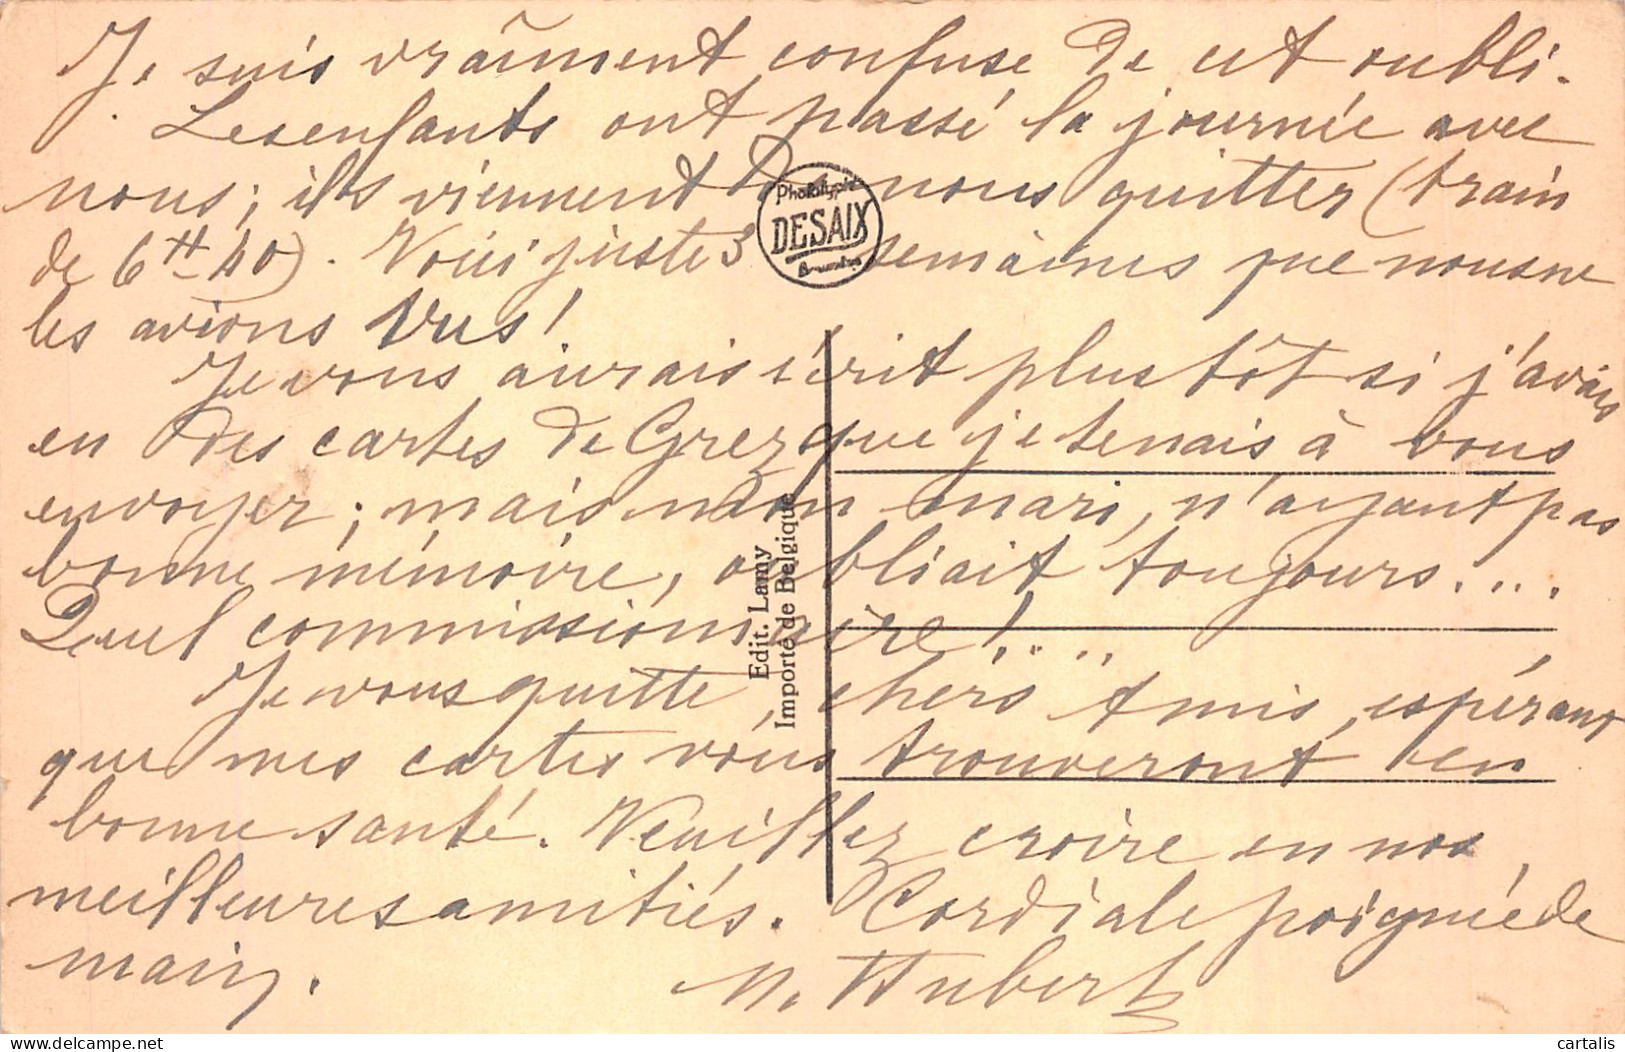 Je suis vraîment confuse de cet oubli.
Les enfants ont passé la journée avec
nous; ils viennent de nous quitter (train
de 6H 40). Voici juste 3 semaines que nous ne
les avions vus!
Je vous aurais écrit plus tôt si j'avais
eu des cartes de Grez que je tenais à vous
envoyer; mais mon mari, n'ayant pas
bonne mémoire, oubliait toujours....
Quel commissionnaire!....
Je vous quitte, chers Amis, espérant
que mes cartes vous trouveront en
bonne santé. Veuillez croire en nos
meilleures amitiés. Cordiale poignée de
main.
M. Hubert
Phototypie
DESAIX
Bruxelles
Edit. Lamy
Importé de Belgique
cartalis
delcampe.net